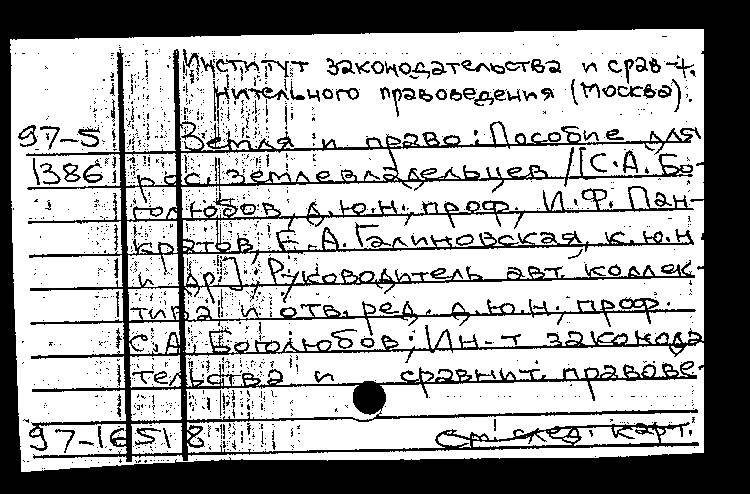 Институт законодательства и срав-
нительного правоведения (Москва).
97-5 Земля и право: Пособие для
1386 рос. землевладельцев /[С.А. Бо-
голюбов, д.ю.н., проф., И.Ф. Пан-
кратов, Е.А. Галиновская, к.ю.н.
и др.]; Руководитель авт. коллек-
тива и отв. ред. д.ю.н., проф.
С.А. Боголюбов; Ин-т законода
тельства и сравнит. правове-
97-16518 См. след. карт.